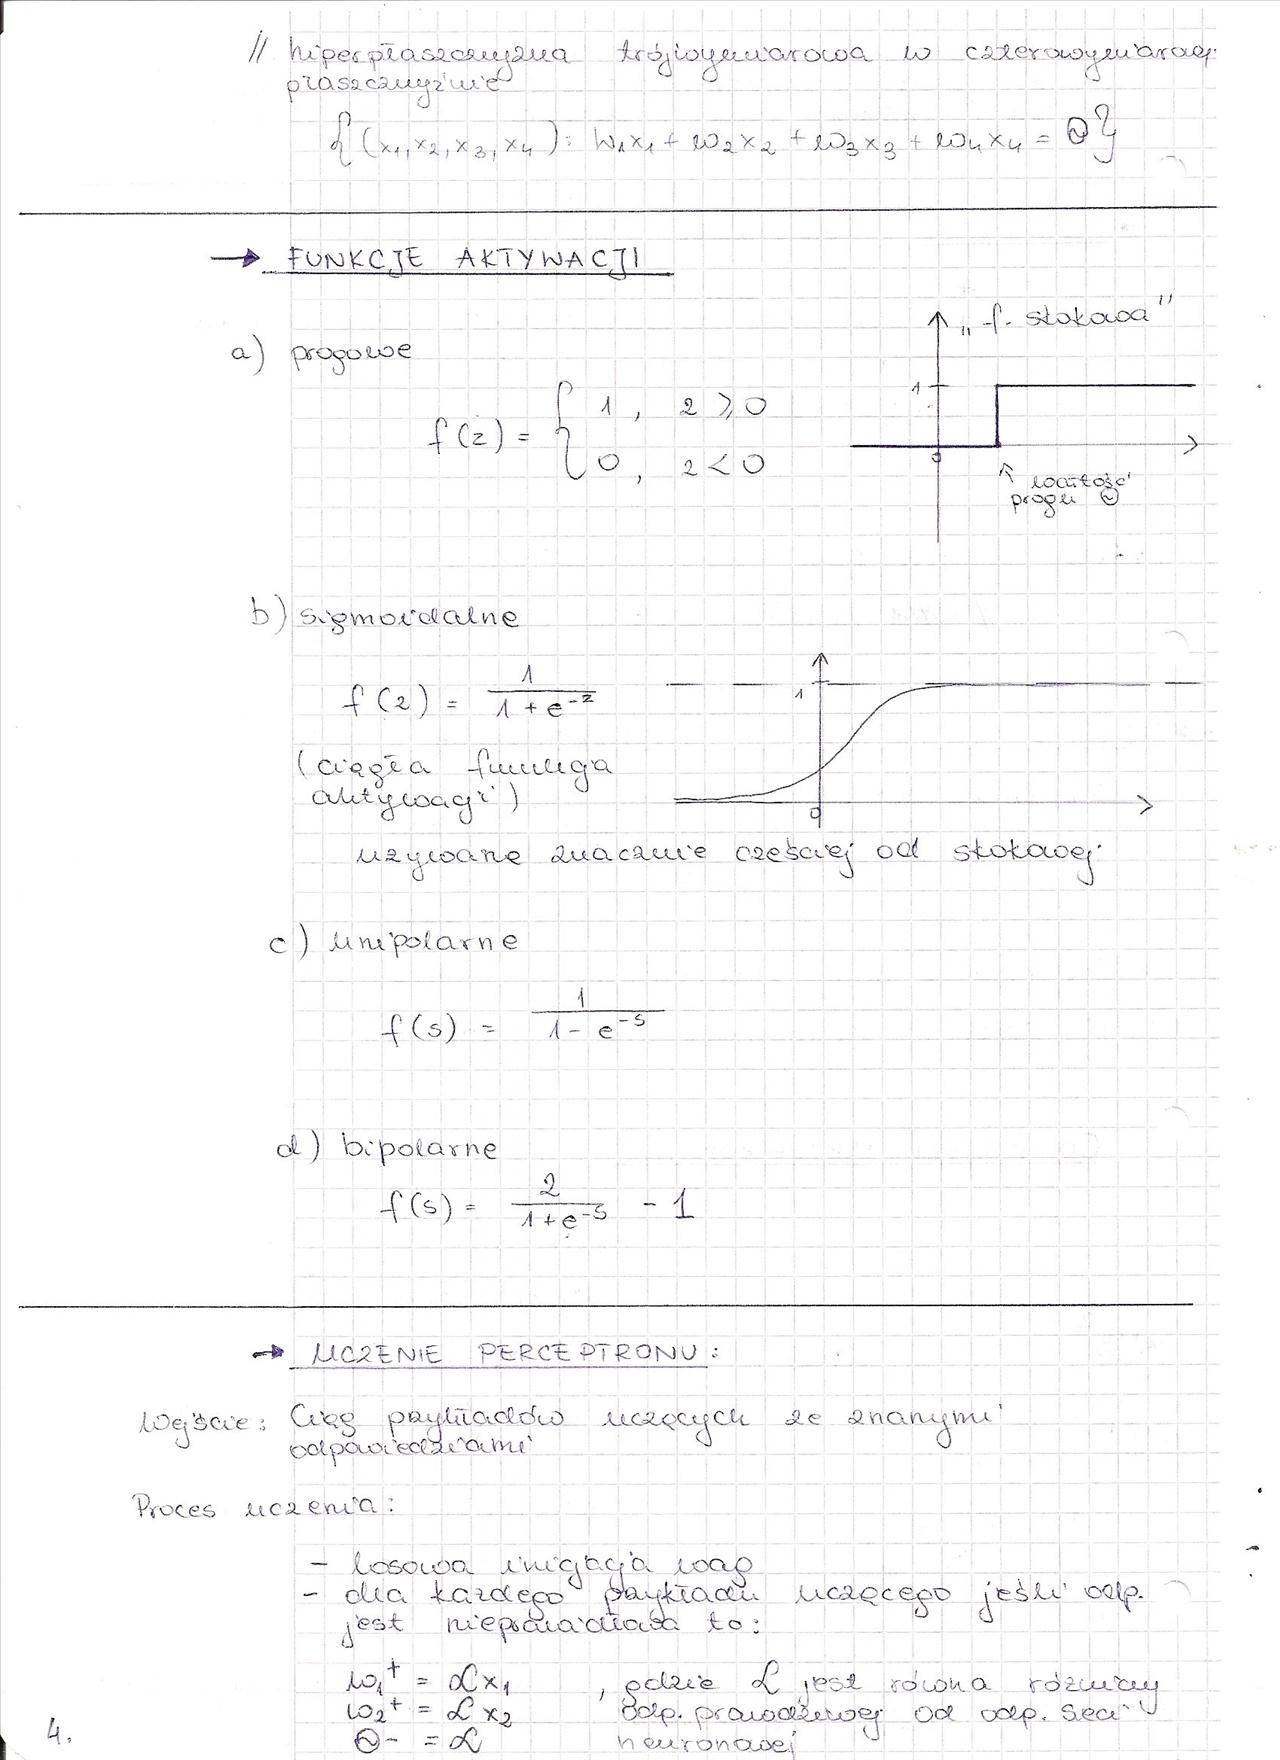 // hiperpłaszczyzna trójwymiarowa w czterowymiarowej
płaszczyźnie
{(x₁, x₂, x₃, x₄): w₁x₁ + w₂x₂ + w₃x₃ + w₄x₄ = Θ}
→ FUNKCJE AKTYWACJI
a) progowe
„f. skokowa”
f(z) = { 1, z ⩾ 0
0, z < 0
1
0
↑ wartość
progu Θ
b) sigmoidalne
f(z) = 1 / (1 + e^-z)
1
0
(ciągła funkcja
aktywacji)
używane znacznie częściej od skokowej
c) unipolarne
f(s) = 1 / (1 - e^-s)
d) bipolarne
f(s) = 2 / (1 + e^-s) - 1
→ UCZENIE PERCEPTRONU:
Wejście: Ciąg przykładów uczących ze znanymi
odpowiedziami
Proces uczenia:
- losowa inicjacja wag
- dla każdego przykładu uczącego jeśli odp.
jest nieprawidłowa to:
w₁⁺ = αx₁ , gdzie α jest równa różnicy
w₂⁺ = αx₂ odp. prawdziwej od odp. sieci
Θ- = α neuronowej
4.